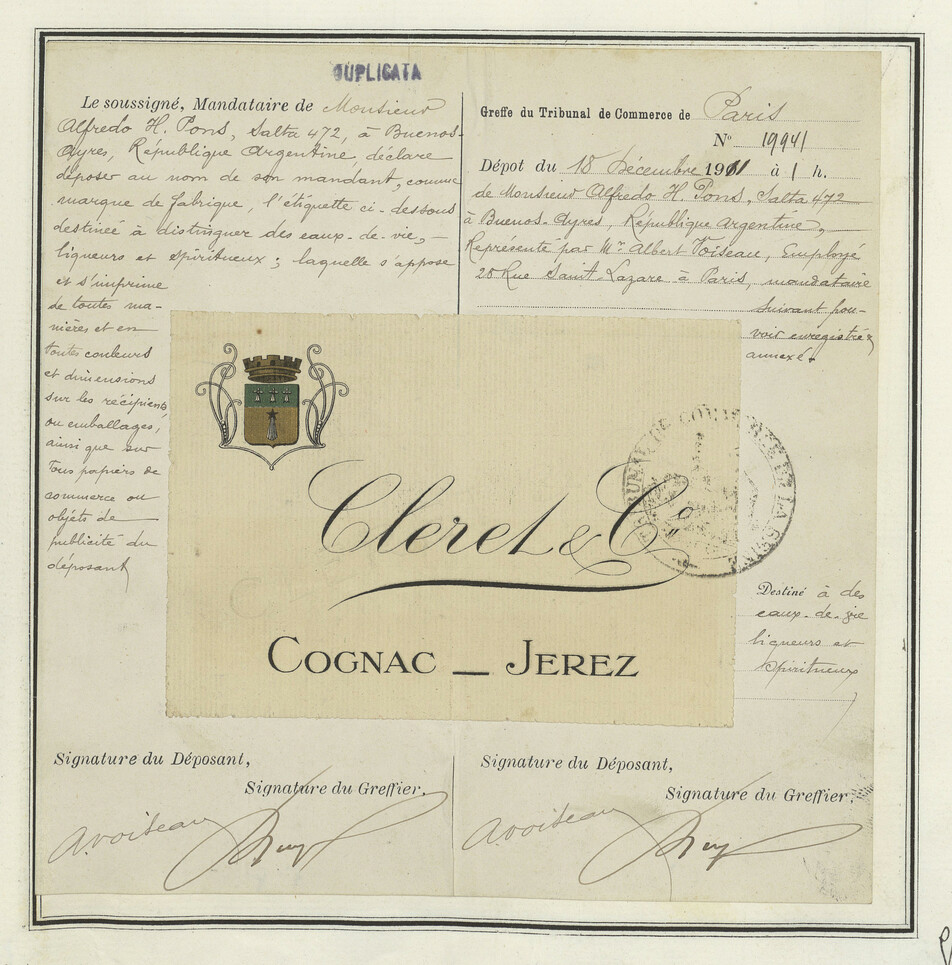 DUPLICATA
Le soussigné, Mandataire de Monsieur
Alfredo H. Pons, Salta 472, à Buenos-
Ayres, République Argentine, déclare
déposer au nom de son mandant, comme
marque de fabrique, l'étiquette ci-dessous
destinée à distinguer des eaux-de-vie,
liqueurs et spiritueux; laquelle s'appose
et s'imprime
de toutes ma-
nières et en
toutes couleurs
et dimensions
sur les récipients,
ou emballages,
ainsi que sur
tous papiers de
commerce ou
objets de
publicité du
déposant
Greffe du Tribunal de Commerce de Paris
N° 19941
Dépot du 18 Décembre 1911 à 1 h.
de Monsieur Alfredo H. Pons, Salta 472
à Buenos-Ayres, République Argentine,
Représenté par Mr Albert Voiseau, Employé
28 Rue Saint-Lazare à Paris, mandataire
suivant pou-
voir enregistré &
annexé.
Cleret & Co
COGNAC _ JEREZ
TRIBUNAL DE COMMERCE DE LA SEINE
Destiné à des
eaux-de-vie
liqueurs et
spiritueux
Signature du Déposant,
Signature du Greffier,
A. Voiseau
Signature du Déposant,
Signature du Greffier,
A. Voiseau